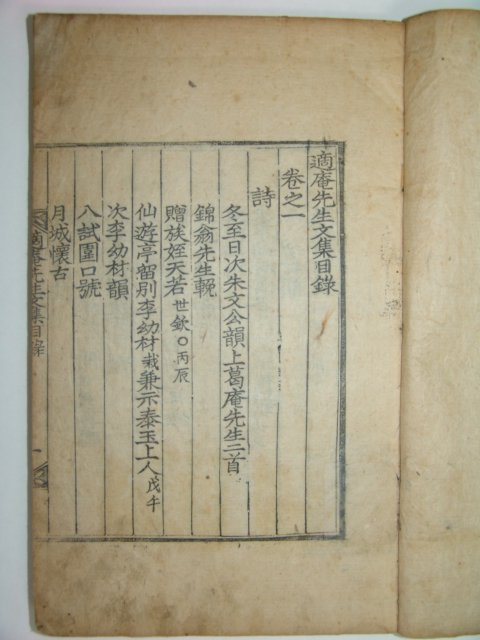 適庵先生文集目錄
卷之一
詩
冬至日次朱文公韻上葛庵先生二首
錦翁先生輓
贈族姪天若世欽○丙辰
仙遊亭留別李幼材栽兼示泰玉上人戊午
次李幼材韻
入試圍口號
月城懷古
適庵先生文集目錄
一